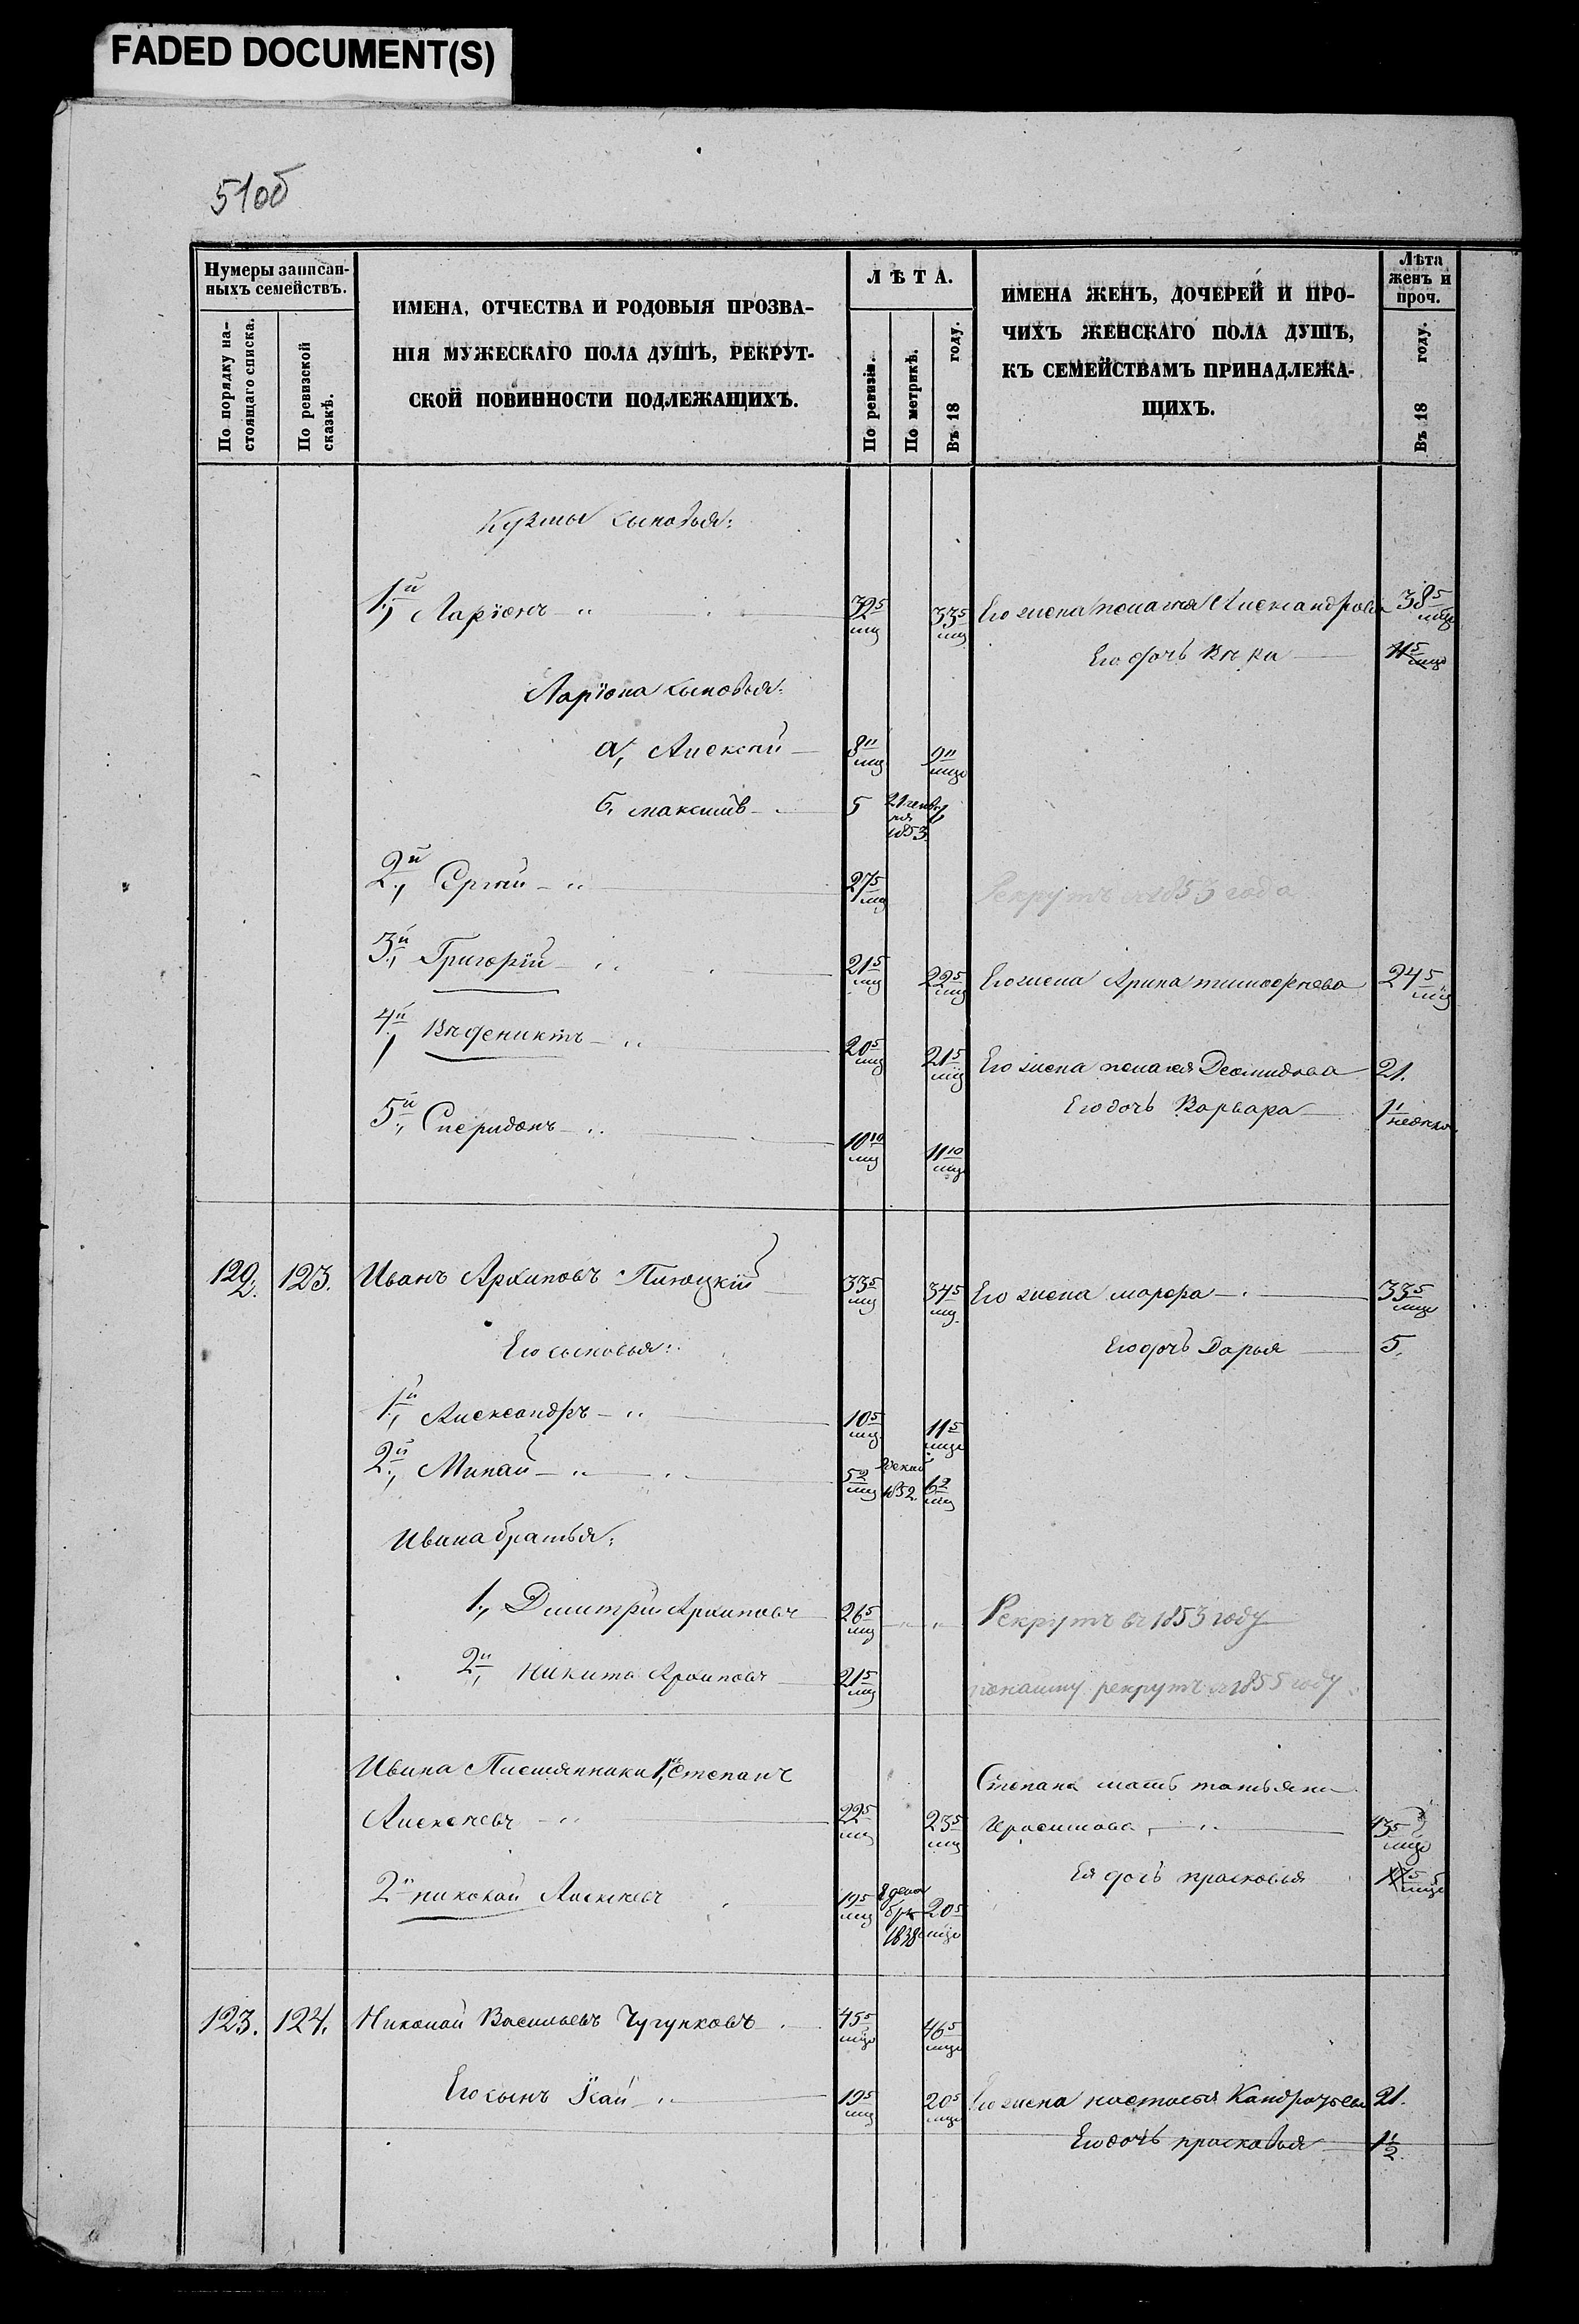 FADED DOCUMENT(S)
51об
Нумеры записан-
ныхъ семействъ.
По порядку на-
стоящаго списка.
По ревизской
сказкѣ.
ИМЕНА, ОТЧЕСТВА И РОДОВЫЯ ПРОЗВА-
НІЯ МУЖЕСКАГО ПОЛА ДУШЪ, РЕКРУТ-
СКОЙ ПОВИННОСТИ ПОДЛЕЖАЩИХЪ.
ЛѢТА.
По ревизіи.
По метрикѣ.
Въ 18 году.
ИМЕНА ЖЕНЪ, ДОЧЕРЕЙ И ПРО-
ЧИХЪ ЖЕНСКАГО ПОЛА ДУШЪ,
КЪ СЕМЕЙСТВАМЪ ПРИНАДЛЕЖА-
ЩИХЪ.
Лѣта
женъ и
проч.
Въ 18 году.
Кузмы сыновья:
1й, Ларіонъ 32 5/мц 33 5/мц Его жена Александрова 38 5/мцв
Его дочь 11 5/мцв
Ларіона сыновья:
а, Алексѣй 8 11/мц 9 11/мцв
б, максимъ 5 1853
2й, Сергѣй 27 5/мц Рекрутъ 1853 года
3й, Григорій 21 5/мц 22 5/мц Его жена Арина тимофѣева 24 5/мц
4й, Вѣдениктъ 20 5/мц 21 5/мц Его жена пелагея Деомидова 21.
Его дочь Варвара 1
5й, Сперидонъ 10 10/мц 11 10/мц
129. 123. Иванъ Архиповъ 33 5/мц 34 5/мц Его жена марфа 33 5/мцв
Его сыновья: Его дочь Дарья 5.
1й, Александръ 10 5/мц 11 5/мцв
2й, Минай 5 2/мц 1852. 6 2/мц
Ивана братья:
1, Дмитрій Архиповъ 26 5/мц Рекрутъ въ 1853 году
2й, Никита Архиповъ 21 5/мц рекрутъ в 1855 году
Ивана Племянники 1й, Степанъ Степана мать татьяна
Алексѣевъ 22 5/мц 23 5/мц Герасимова 43 5/мцв
2й николай Алексѣевъ 19 5/мц 8 дека бря 1838 20 5/мцв Ея дочь прасковья
123. 124. Николай Васильевъ Чугунковъ 45 5/мцв 46 5/мцв
Его сынъ 19 5/мц 20 5/мцв Его жена настасья Кандратьева 21.
Его дочь прасковья 1 1/2.